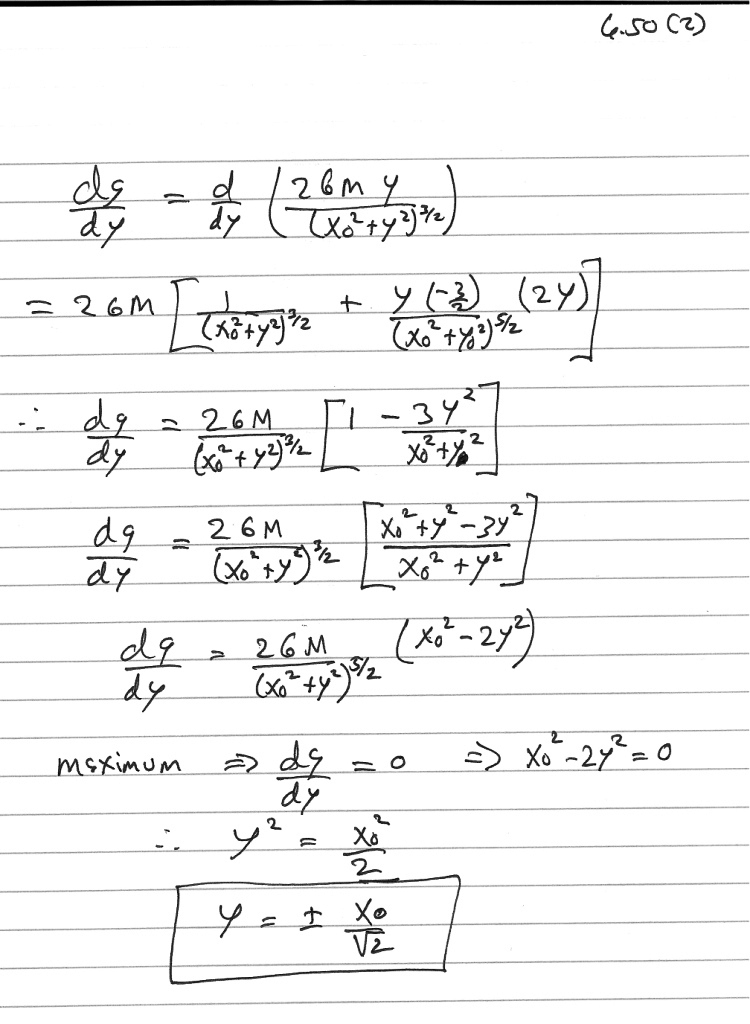 6.50 (2)
dg/dy = d/dy (2GM y/(x₀²+y²)^3/2)
= 2GM [1/(x₀²+y²)^3/2 + y(-3/2)/(x₀²+y₀²)^5/2 (2y)]
∴ dg/dy = 2GM/(x₀²+y²)^3/2 [1 - 3y²/(x₀²+y²)]
dg/dy = 2GM/(x₀²+y²)^3/2 [(x₀²+y²-3y²)/(x₀²+y²)]
dg/dy = 2GM/(x₀²+y²)^5/2 (x₀²-2y²)
maximum ⇒ dg/dy = 0 ⇒ x₀²-2y²=0
∴ y² = x₀²/2
y = ± x₀/√2